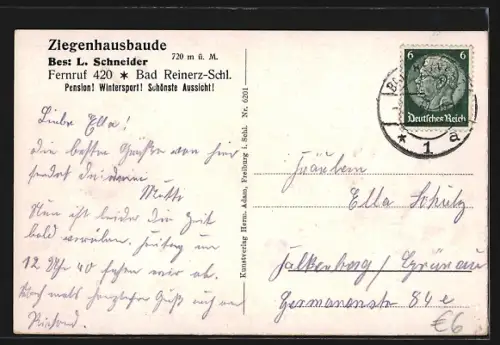 Ziegenhausbaude
720 m ü. M.
Bes: L. Schneider
Fernruf 420 ★ Bad Reinerz-Schl.
Pension! Wintersport! Schönste Aussicht!
Liebe Ella!
Die besten Grüße von hier
sendet Dir Deine
Mutti
Nun ist leider die Zeit
bald Freitag um
12 Uhr 40 fahren wir ab.
Nochmals Gruß auch an
Kunstverlag Herm. Adam, Freiburg i. Schl. Nr. 6201
6 6
Deutsches Reich
★ 1 a
Fräulein
Ella Schulz
Falkenberg / Grünau
Germanenstr 84 e
€6